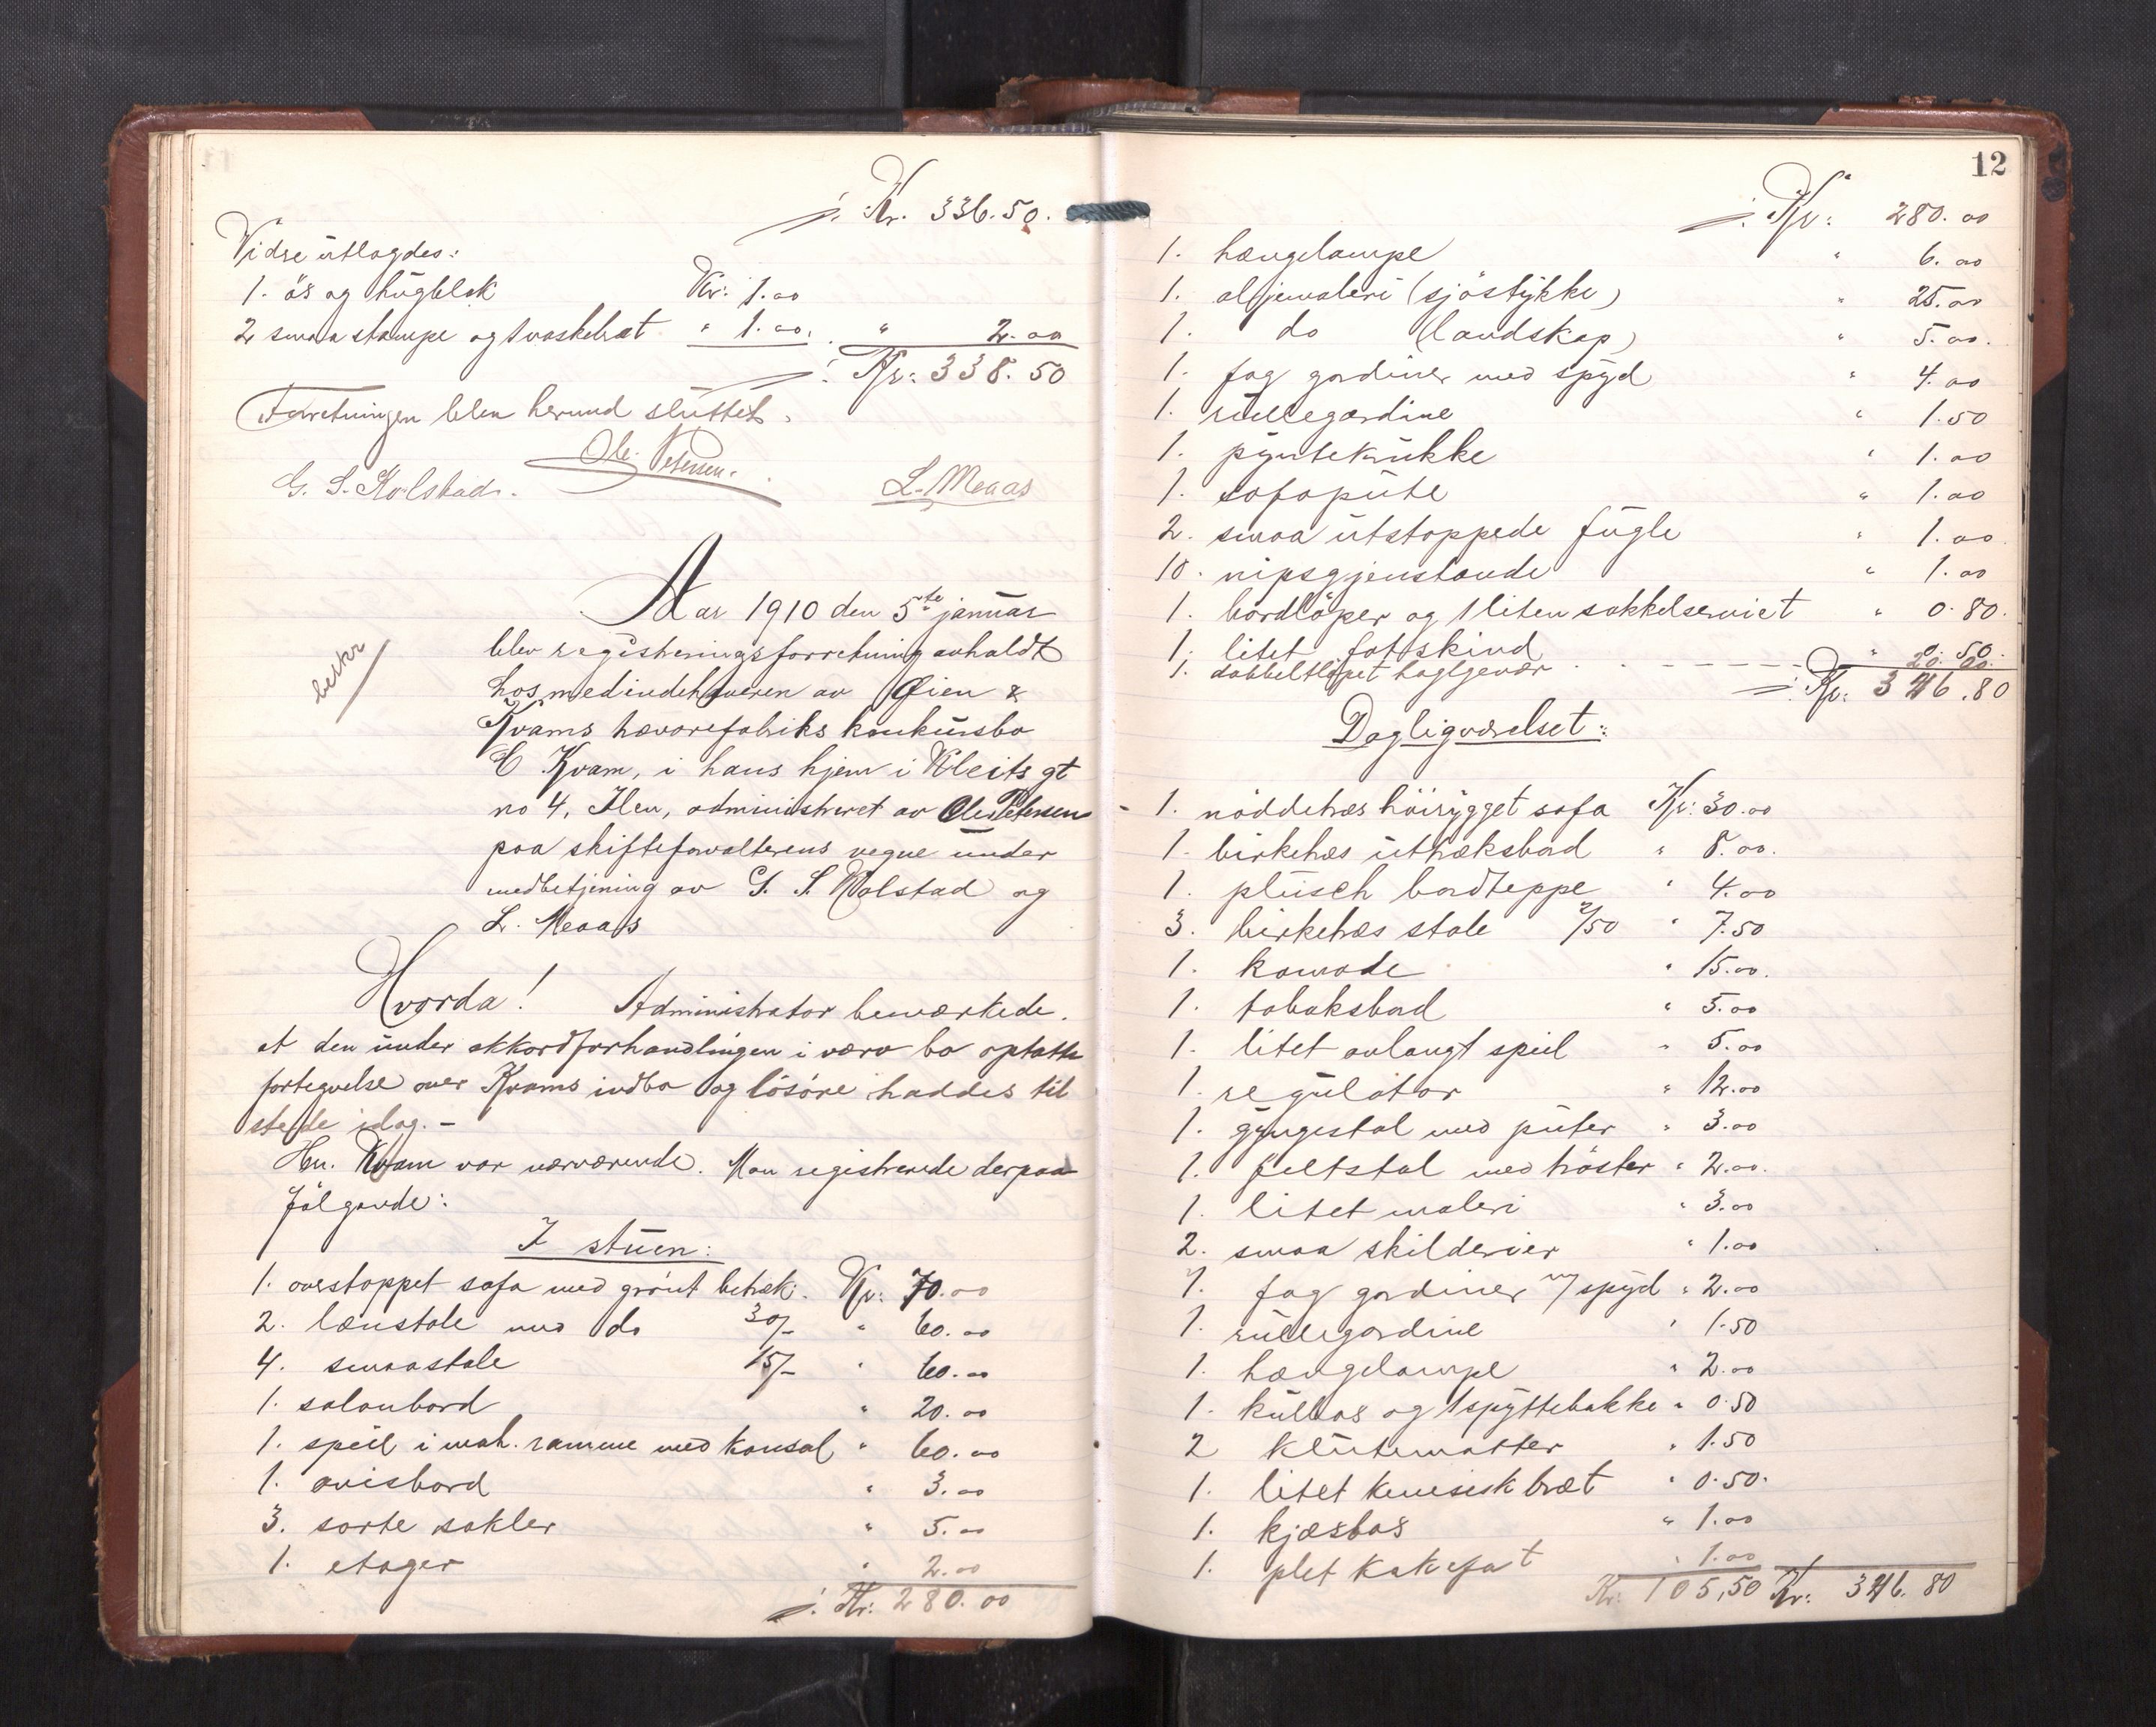 ./. Kr. 336.50.
Vidre utlagdes:
1. øs og hugblok Kr: 1.00
2 smaa stampe og 1 vaskebræt " 1.00. " 2.00
./. Kr: 338.50
Forretningen blev hermed sluttet.
Ole Petersen.
G. S. Kolstad. L. Meaas
Aar 1910 den 5te januar
beskr
blev registreringsforretning avholdt
hos medindehaveren av Øien &
Kvams hævarefabriks konkursbo
C Kvam, i hans hjem i Kleits gt
no 4, Ilen, administreret av Ole Petersen
paa skifteforvalterens vegne under
medbetjening av G. S. Kolstad og
L. Meaas
Hvorda! Administrator bemærkede.
at den under akkordforhandlingen i være bo optatte
fortegnelse over Kvams indbo og løsøre haddes til
stede idag. -
Hr. Kvam var nærværende. Man registrerede derpaa
følgende:
I stuen:
1. overstoppet sofa med grønt betræk. Kr: 70.00
2. lænstole med do 30/- " 60.00
4. smaastole 15/- " 60.00
1. salonbord " 20.00
1. speil i mah. ramme med konsol " 60.00
1. avisbord " 3.00
3. sorte sokler " 5.00
1. etager " 2.00
./. Kr: 280.00
12
./. Kr: 280.00
1. hængelampe " 6.00
1. oljemaleri (sjøstykke) " 25.00
1. do (landskap) " 5.00.
1. fag gardiner med spyd " 4.00
1. rullegardine " 1.50
1. pyntekrukke " 1.00
1. sofapute " 1.00
2. smaa utstoppede fugle " 1.00
10. nipsgjenstande " 1.00
1. bordløper og 1 liten sokkelserviet " 0.80.
1. litet fotskind " 0.50.
1. dobbeltløpet haglgevær - - - - 20.00.
./. Kr: 346.80
Dagligværelset:
1. nøddetræs høirygget sofa Kr: 30.00
1. birketræs uttræksbord " 8.00.
1. plusch bordteppe " 4.00
3. birketræs stole 2/50 " 7.50
1. komode " 15.00.
1. tobaksbord " 5.00
1. litet avlangt speil " 5.00
1. regulator " 12.00
1. gyngestol med puter " 3.00
1. feltstol med trøster " 2.00.
1. litet maleri " 3.00
2. smaa skilderier " 1.00
1. fag gardiner m/ spyd " 2.00
1. rullegardine " 1.50
1. hængelampe " 2.00
1. kulbos og 1 spyttebakke " 0.50
2 klutematter " 1.50
1. litet kinesisk bræt " 0.50.
1. kjæsbos " 1.00
1. plet kakefat " 1.00
Kr: 105,50 Kr: 346.80